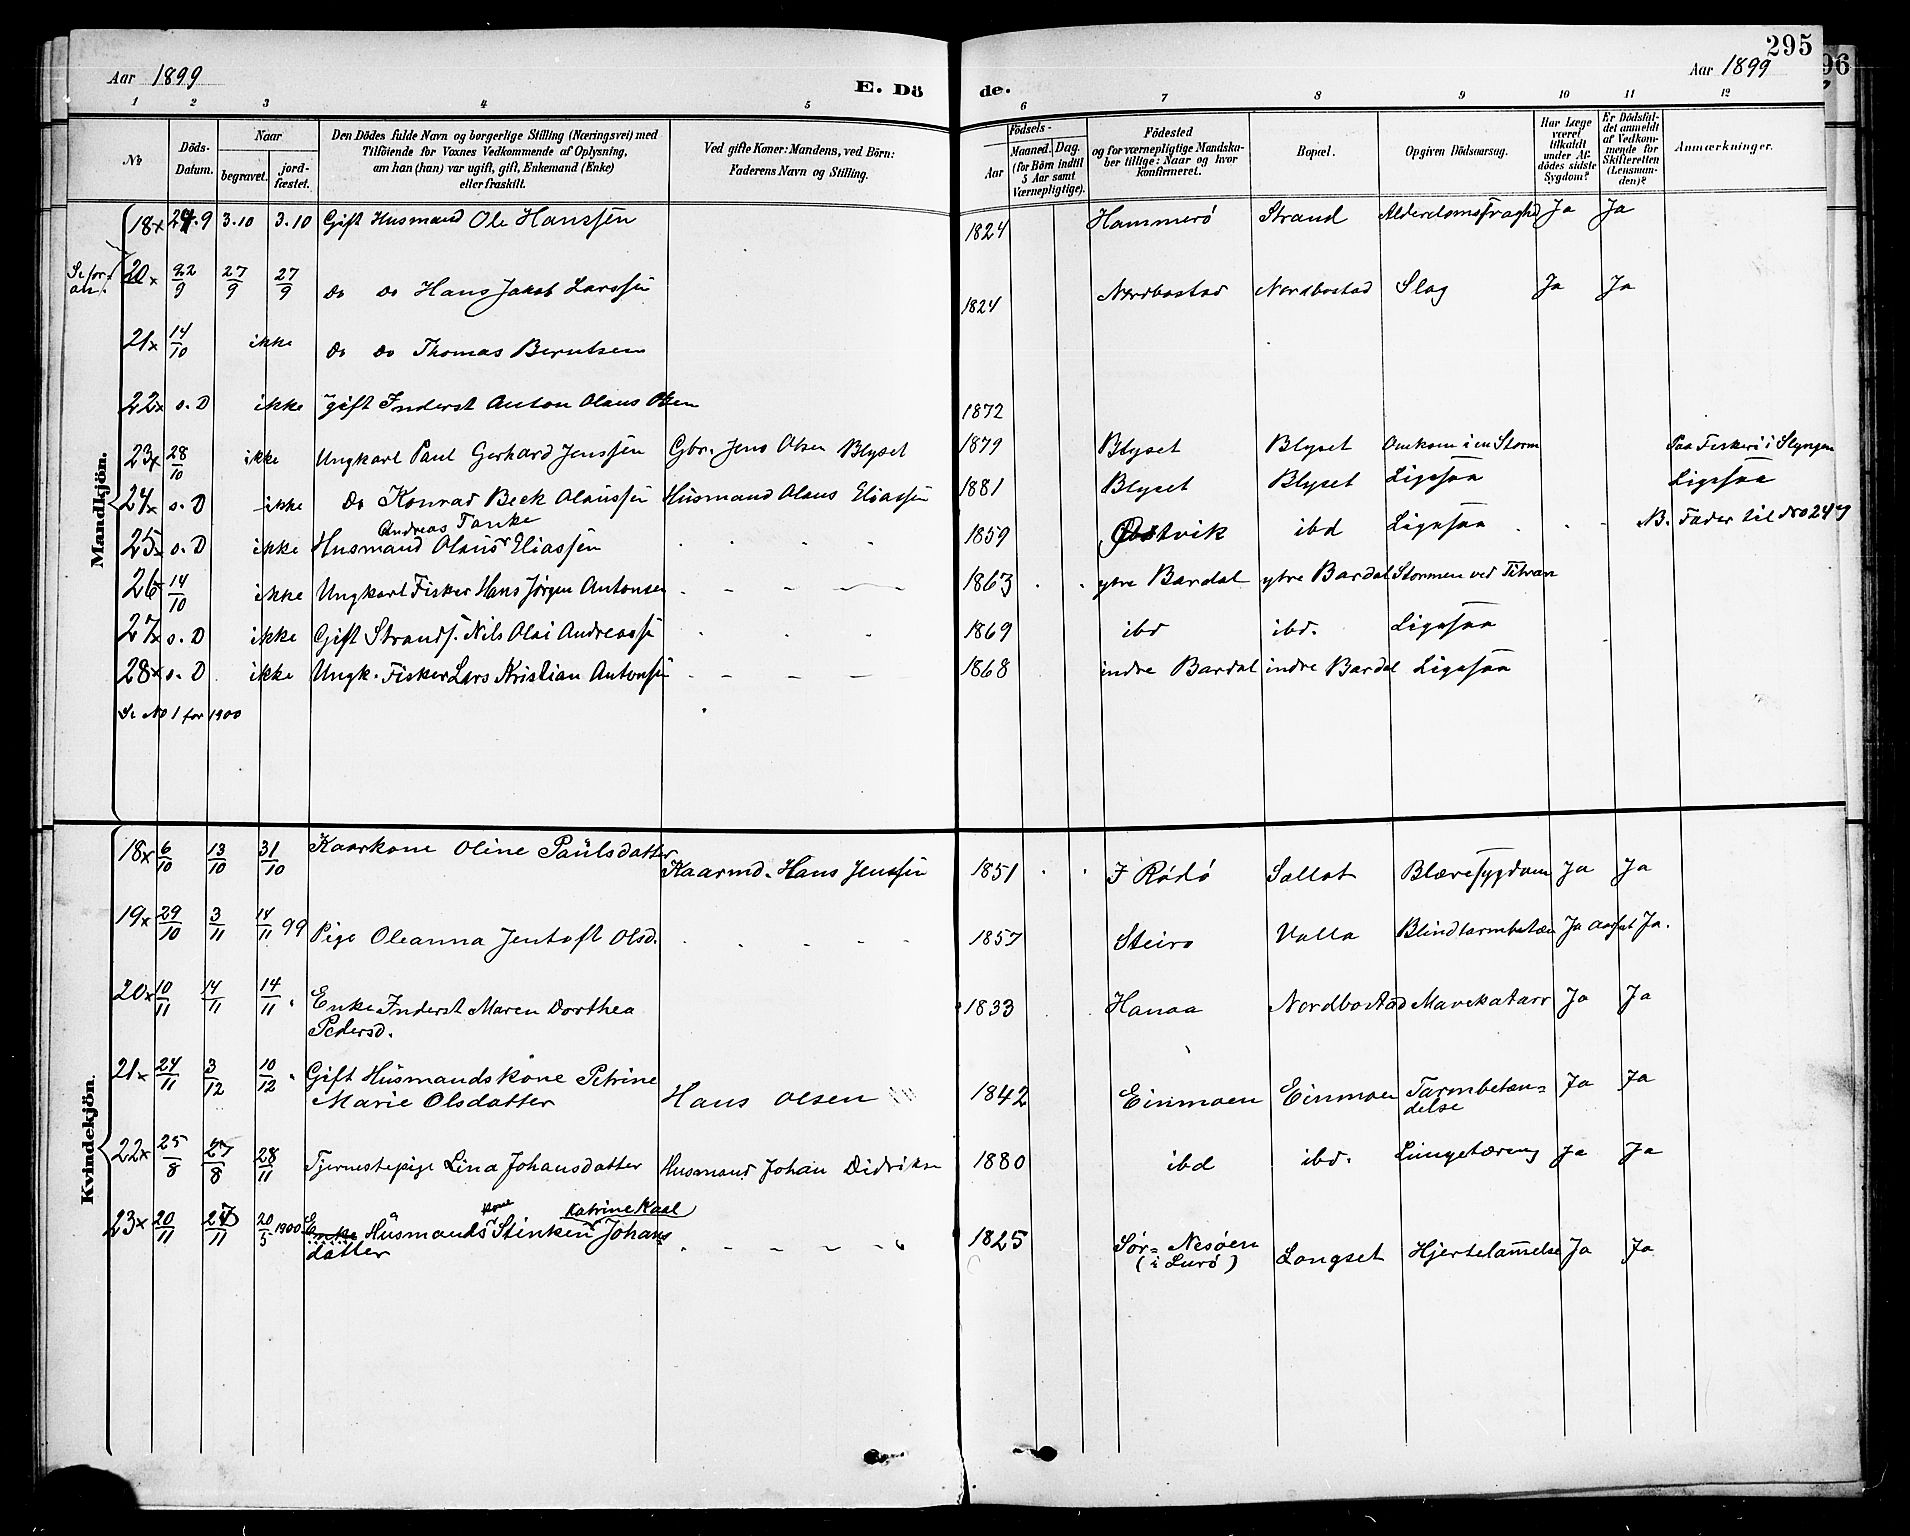 295
96
Aar 1899
E. Dö de.
Aar 1899
1 2 3 4 5 6 7 8 9 10 11 12
No
Döds-Datum.
Naar
begravet.
jord-fæstet.
Den Dödes fulde Navn og borgerlige Stilling (Næringsvei) med
Tilföiende for Voxnes Vedkommende af Oplysning,
om han (hun) var ugift, gift, Enkemand (Enke)
eller fraskilt.
Ved gifte Koner: Mandens, ved Börn:
Faderens Navn og Stilling.
Födsels-
Aar
Maaned. Dag.
(for Börn indtil
5 Aar samt
Værnepligtige).
Födested
og for værnepligtige Mandska-
ber tillige: Naar og hvor
konfirmeret.
Bopæl.
Opgiven Dödsaarsag.
Har Læge
været
tilkaldt
under Af-
dödes sidste
Sygdom?
Er Dödsfal-
det anmeldt
af Vedkom-
mende for
Skifteretten
(Lensman-
den)?
Anmærkninger.
Mandkjön.
18x 24.9 3.10 3.10 Gift Husmand Ole Hanssen 1824 Hammerö Strand Alderdomssvaghed Ja Ja
Se for-
an.
20x 22/9 27/9 27/9 Do Do Hans Jakob Larssen 1824 Nordbostad Nordbostad Slag Ja Ja
21x 14/10 ikke Do Do Thomas Berntsen
22x s. D ikke gift Inderst Anton Olaus Olsen 1872
23x 28/10 ikke Ungkarl Paul Gerhard Jenssen Gbr. Jens Olsen Blyset 1879 Blyset Blyset Omkom i en Storm Paa Fiskeri i Slyngen
24x s. D ikke Do Konrad Beck Olaussen Husmand Olaus Eliassen 1881 Blyset Blyset Ligesaa Ligesaa
Andreas Tanke
25x s. D ikke Husmand Olaus Eliassen 1859 Østvik ibd Ligesaa N. Fader til No 24
26x 14/10 ikke Ungkarl Fisker Hans Jørgen Antonsen 1863 ytre Bardal ytre Bardal Stormen ved Titran
27x s. D ikke Gift Strands. Nils Olai Andreassen 1869 ibd ibd. Ligesaa
28x s. D ikke Ungk. Fisker Lars Kristian Antonsen 1868 indre Bardal indre Bardal Ligesaa
Se No 1 for 1900
Kvindekjön.
18x 6/10 13/10 31/10 Kaarkone Oline Paulsdatter Kaarmd. Hans Jenssen 1851 I Rödö Sallat Blæresygdom Ja Ja
19x 29/10 3/11 14/11 99 Pige Oleanna Jentoft Olsd. 1857 Steiro Valla Blindtarmbetæn Ja Ja.
20x 10/11 14/11 14/11 Enke Inderst Maren Dorthea
Pedersd. 1833 Hanaa Nordbostad Mavekatarr Ja Ja
21x 24/11 3/12 10/12 Gift Husmandskone Petrine
Marie Olsdatter Hans Olsen 1842 Einmoen Einmoen Tarmbetæn-
delse Ja Ja
22x 25/8 27/8 28/11 Tjernestepige Lina Johansdatter Husmand Johan Didriksen 1880 ibd ibd. Lungetæring Ja Ja
kone Katrine Kaal
23x 20/11 27/11 20/5 1900 Enke Husmands Stinken Johans
datter 1825 Sør-Nesøen
(i Lurö) Langset Hjertelammelse Ja Ja